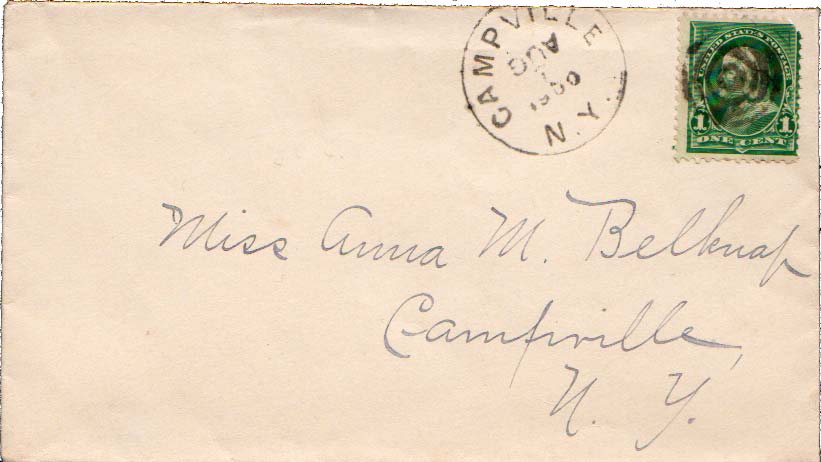 CAMPVILLE
AUG
1900
N.Y.
UNITED STATES POSTAGE
1 1
ONE CENT
Miss Anna M. Belknap
Campville,
N. Y.